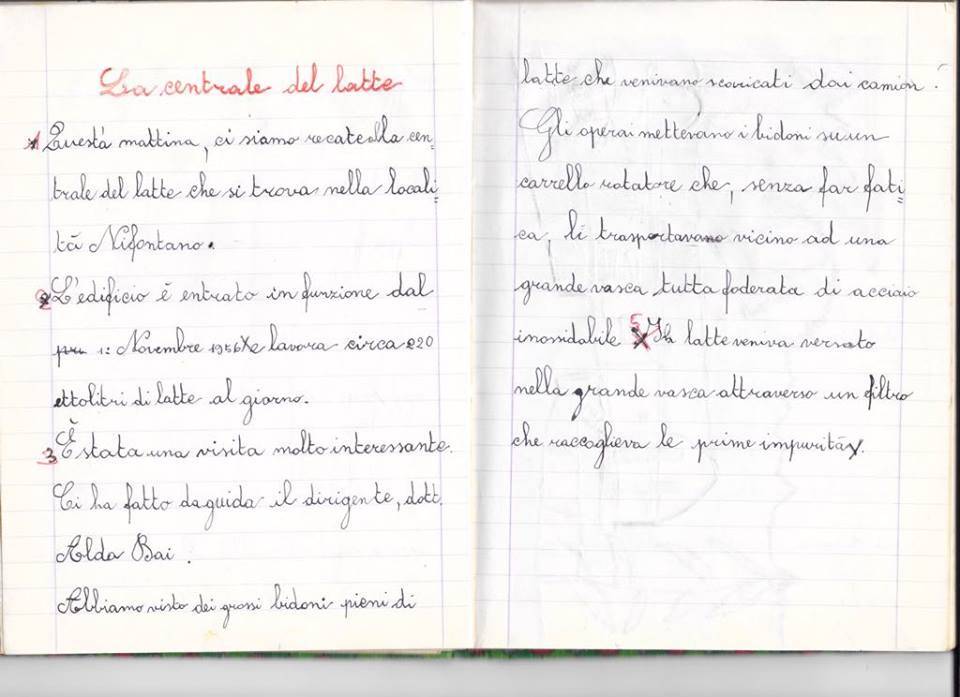 La centrale del latte
1 Questa mattina, ci siamo recate alla cen=
trale del latte che si trova nella locali=
tà Nifontano.
2 L'edificio è entrato in funzione dal
1: Novembre 1956 e lavora circa 220
ettolitri di latte al giorno.
3 È stata una visita molto interessante.
Ci ha fatto da guida il dirigente, dott.
Alda Bai.
Abbiamo visto dei grossi bidoni pieni di
latte che venivano scaricati dai camion.
Gli operai mettevano i bidoni su un
carrello rotatore che, senza far fati=
ca, li trasportavano vicino ad una
grande vasca tutta foderata di acciaio
inossidabile 5 Il latte veniva versato
nella grande vasca attraverso un filtro
che raccoglieva le prime impurità.